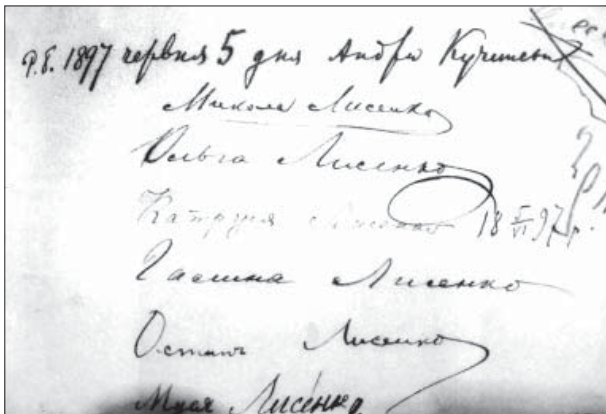 Р.Б. 1897 червня 5 дня Андрій
Микола Лисенко
Ольга Лисенко
Катруся Лисенко 18 5/VI 97 р.
Галина Лисенко
Остапъ Лисенко
Лисенко